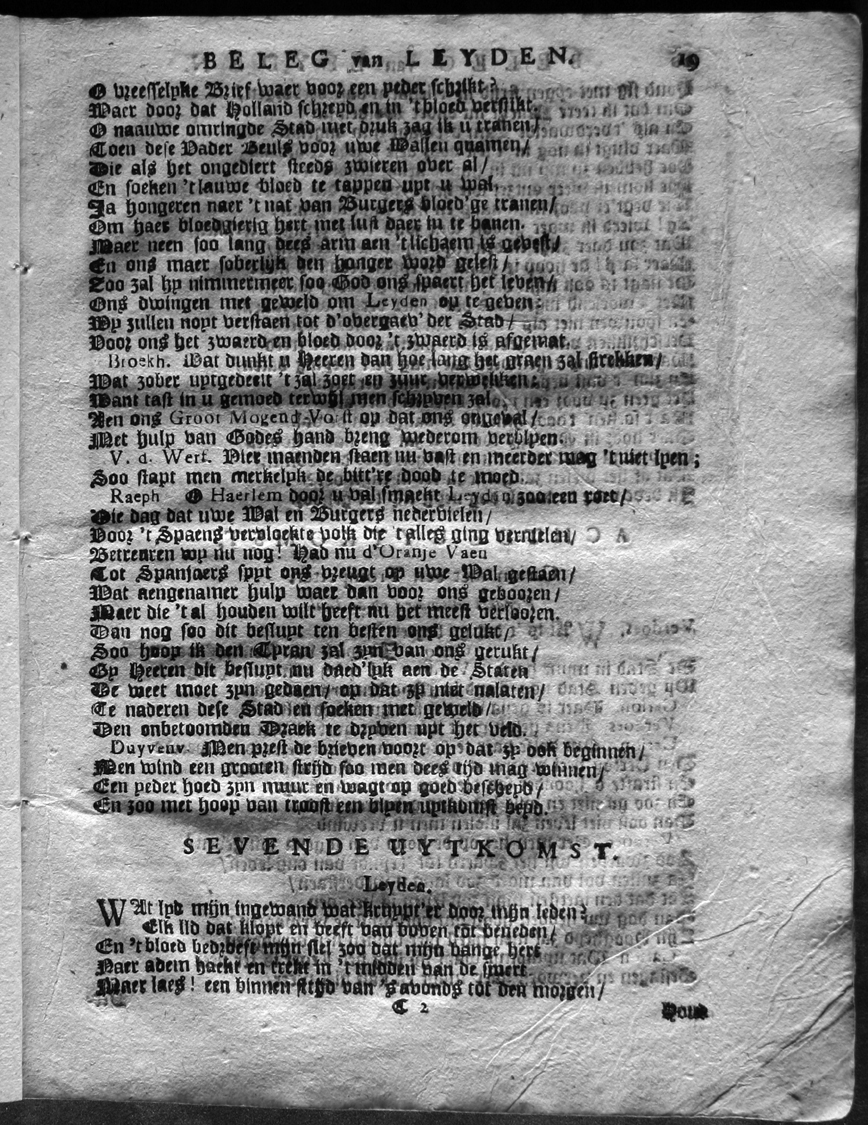 BELEG van LEYDEN. 19
O vreesselyke Brief waer voor een yeder schrikt?
Waer door dat Holland schreyd en in 't bloed verstikt.
O naauwe omringde Stad met druk zag ik u tranen/
Toen dese Vader Beuls voor uwe Wallen quamen/
Die als het ongediert steeds zwieren over al/
En soeken 't lauwe bloed te tappen uyt u wal.
Ja hongeren naer 't nat van Burgers bloed'ge tranen/
Om haer bloedgierig hert met lust daer in te banen.
Maer neen soo lang dees arm aen 't lichaem is gevest/
En ons maer soberlijk den honger word gelest/
Zoo zal hy nimmermeer soo God ons spaert het leven/
Ons dwingen met geweld om Leyden op te geven:
Wy zullen noyt verstaen tot d'overgaev' der Stad/
Voor ons het zwaerd en bloed door 't zwaerd is afgemat.
Broekh. Wat dunkt u Heeren dan hoe lang het graen zal strekken/
Wat zober uytgedeelt 't zal zoet en zuur verwekken:
Want tast in u gemoed terwijl men schryven zal
Aen ons Groot Mogend Vorst op dat ons ongeval/
Met hulp van Godes hand breng wederom verblyen.
V. d. Werf. Vier maenden staen nu vast en meerder mag 't niet lyen;
Soo stapt men merkelyk de bitt're dood te moed.
Raeph O Haerlem door u val smaekt Leyden zoo een roet/
Die dag dat uwe Wal en Burgers nedervielen/
Voor 't Spaens vervloekte volk die 't alles ging vernielen/
Betreuren wy nu nog! Had nu d'Oranje Vaen
Tot Spanjaers spyt ons vreugt op uwe Wal gestaen/
Wat aengenamer hulp waer dan voor ons gebooren/
Maer die 't al houden wilt heeft nu het meest verlooren.
Dan nog soo dit besluyt ten besten ons gelukt/
Soo hoop ik den Tyran zal zyn van ons gerukt/
Gy Heeren dit besluyt nu daed'lyk aen de Staten
De weet moet zyn gedaen/ op dat zy niet nalaten/
Te naderen dese Stad en soeken met geweld/
Den onbetoomden Draek te dryven uyt het veld.
Duyvenv. Men prest de brieven voort op dat zy ook beginnen/
Men wind een grooten strijd soo men dees tijd mag winnen/
Een yeder hoed zyn muur en wagt op goed bescheyd/
En zoo met hoop van troost een blyen uytkomst beyd.
SEVENDE UYTKOMST.
Leyden.
WAt lyd mijn ingewand wat krupt'er door mijn leden?
Elk lid dat klopt en beeft van boven tot beneden/
En 't bloed bedroeft mijn siel zoo dat mijn bange hert
Naer adem haekt en trekt in 't midden van de smert
Maer laes! een binnen strijd van 's avonds tot den morgen/
C 2